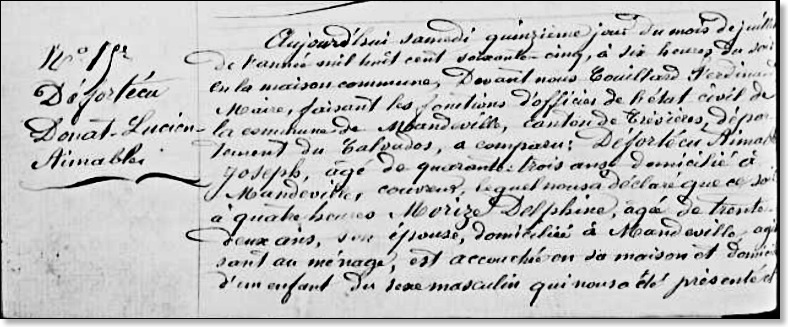 N° 15
Défortécu
Donat-Lucien-
Aimable
Aujourd'hui samedi quinzième jour du mois de juillet
de l'année mil huit cent soixante-cinq, à six heures du soir
en la maison commune, Devant nous Touillard Ferdinand
Maire, faisant les fonctions d'officier de l'état civil de
la commune de Mandeville, canton de Trévières, dépar-
tement du Calvados, a comparu: Défortécu Aimable
Joseph, âgé de quarante-trois ans domicilié à
Mandeville, couvreur, lequel nous a déclaré que ce soir
à quatre heures Morize Delphine, âgé de trente-
deux ans, son épouse, domiciliée à Mandeville agis
sant au ménage, est accouchée en sa maison et domicile
d'un enfant du sexe masculin qui nous a été présenté et